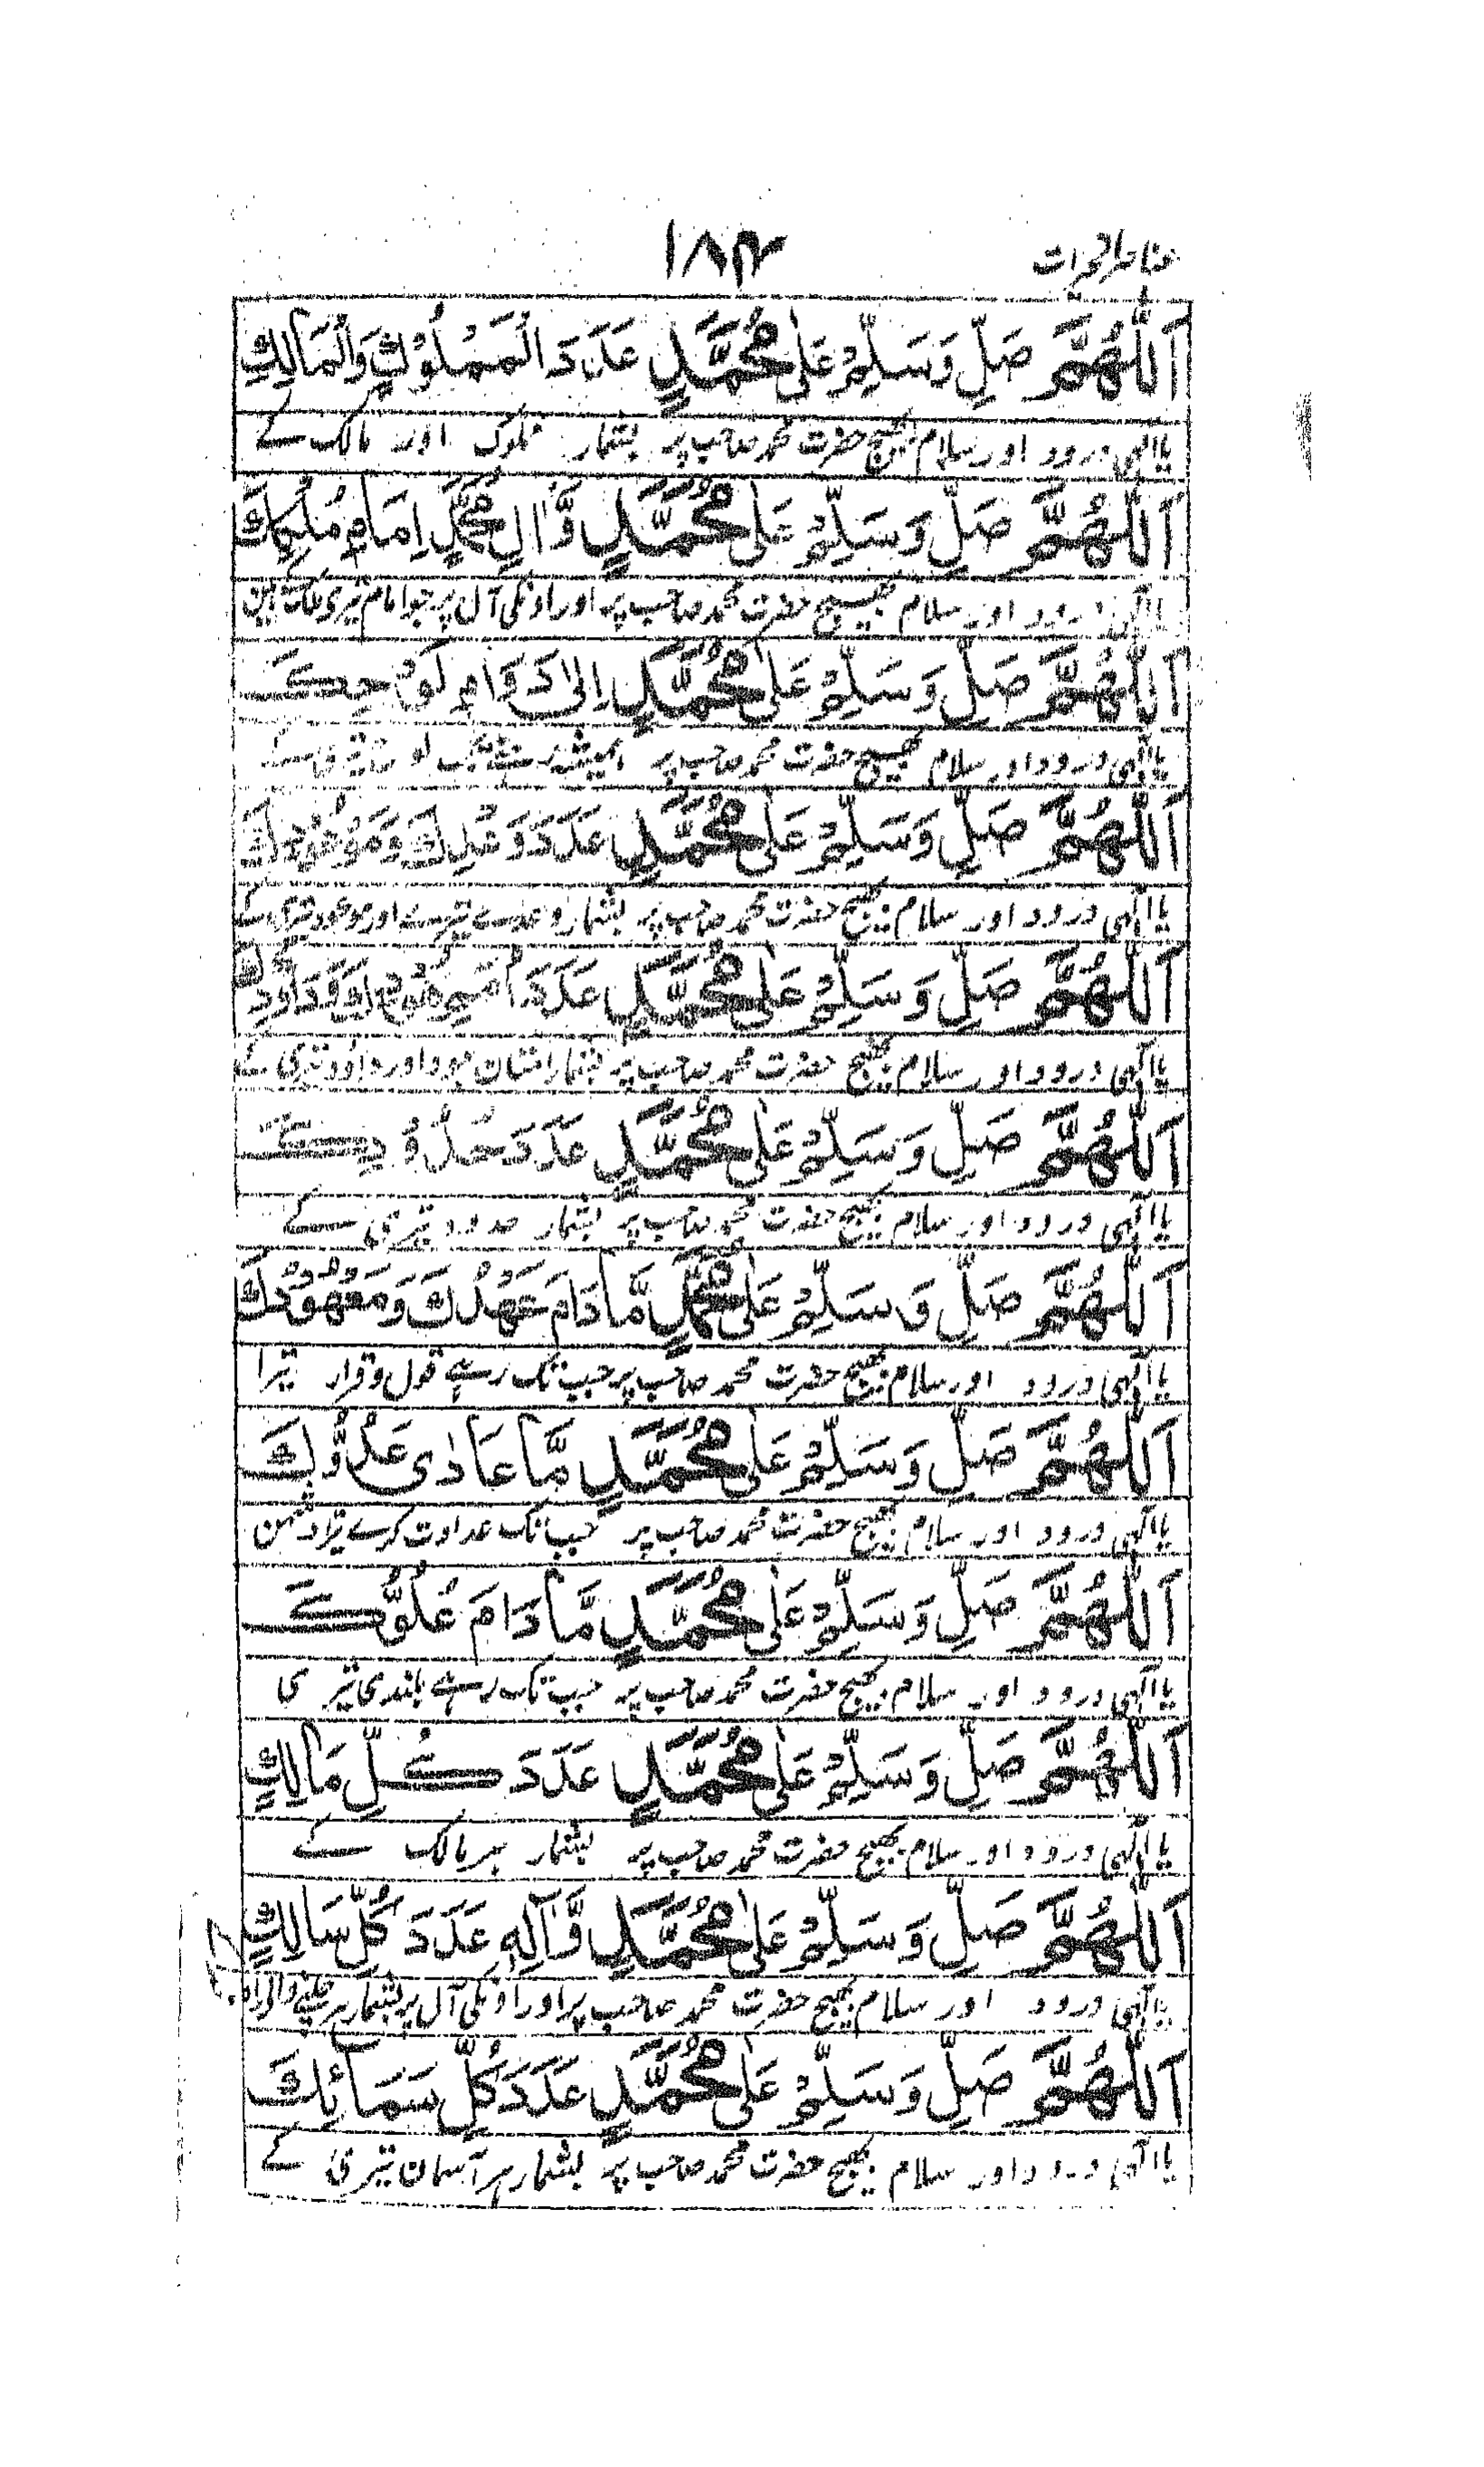 ۱۸۴
اَللّٰهُمَّ صَلِّ وَسَلِّمْ عَلٰى مُحَمَّدٍ عَدَدَ الْمَمْلُوْكِ وَالْمَالِكِ
یا الٰہی درود اور سلام بھیج حضرت محمد صاحب پر بشمار مملوک اور مالک کے
اَللّٰهُمَّ صَلِّ وَسَلِّمْ عَلٰى مُحَمَّدٍ وَّاٰلِ مُحَمَّدٍ اِمَامِ
یا الٰہی درود اور سلام بھیج حضرت محمد صاحب پر اور اونکی آل پر جو امام تیری ہین
اَللّٰهُمَّ صَلِّ وَسَلِّمْ عَلٰى مُحَمَّدٍ اِلىٰ دَوَامِ
یا الٰہی درود اور سلام بھیج حضرت محمد صاحب پر ہمیشہ رہنے تک
اَللّٰهُمَّ صَلِّ وَسَلِّمْ عَلٰى مُحَمَّدٍ عَدَدَ وَعْدِكَ
یا الٰہی درود اور سلام بھیج حضرت محمد صاحب پر بشمار وعدے تیرے اور موعود تیری کے
اَللّٰهُمَّ صَلِّ وَسَلِّمْ عَلٰى مُحَمَّدٍ عَدَدَ
یا الٰہی درود اور سلام بھیج حضرت محمد صاحب پر بشمار اور داؤد تیری کے
اَللّٰهُمَّ صَلِّ وَسَلِّمْ عَلٰى مُحَمَّدٍ عَدَدَ حُدُوْدِكَ
یا الٰہی درود اور سلام بھیج حضرت محمد صاحب پر بشمار حدود تیری کے
اَللّٰهُمَّ صَلِّ وَسَلِّمْ عَلٰى مُحَمَّدٍ مَّا دَامَ عَهْدُكَ وَمَعْهُوْدُكَ
یا الٰہی درود اور سلام بھیج حضرت محمد صاحب پر جب تک رہے قول و قرار تیرا
اَللّٰهُمَّ صَلِّ وَسَلِّمْ عَلٰى مُحَمَّدٍ مَّا عَادٰى عَدُوُّكَ
یا الٰہی درود اور سلام بھیج حضرت محمد صاحب پر جب تک عداوت کرے تیرا دشمن
اَللّٰهُمَّ صَلِّ وَسَلِّمْ عَلٰى مُحَمَّدٍ مَّا دَامَ عُلُوُّكَ
یا الٰہی درود اور سلام بھیج حضرت محمد صاحب پر جب تک رہے بلندی تیری
اَللّٰهُمَّ صَلِّ وَسَلِّمْ عَلٰى مُحَمَّدٍ عَدَدَ كُلِّ مَالِكٍ
یا الٰہی درود اور سلام بھیج حضرت محمد صاحب پر بشمار ہر مالک کے
اَللّٰهُمَّ صَلِّ وَسَلِّمْ عَلٰى مُحَمَّدٍ وَّاٰلِهٖ عَدَدَ كُلِّ سَالِكٍ
یا الٰہی درود اور سلام بھیج حضرت محمد صاحب پر اور اونکی آل پر بشمار ہر چلنے والے
اَللّٰهُمَّ صَلِّ وَسَلِّمْ عَلٰى مُحَمَّدٍ عَدَدَ كُلِّ سَمَائِكَ
یا الٰہی درود اور سلام بھیج حضرت محمد صاحب پر بشمار ہر آسمان تیری کے